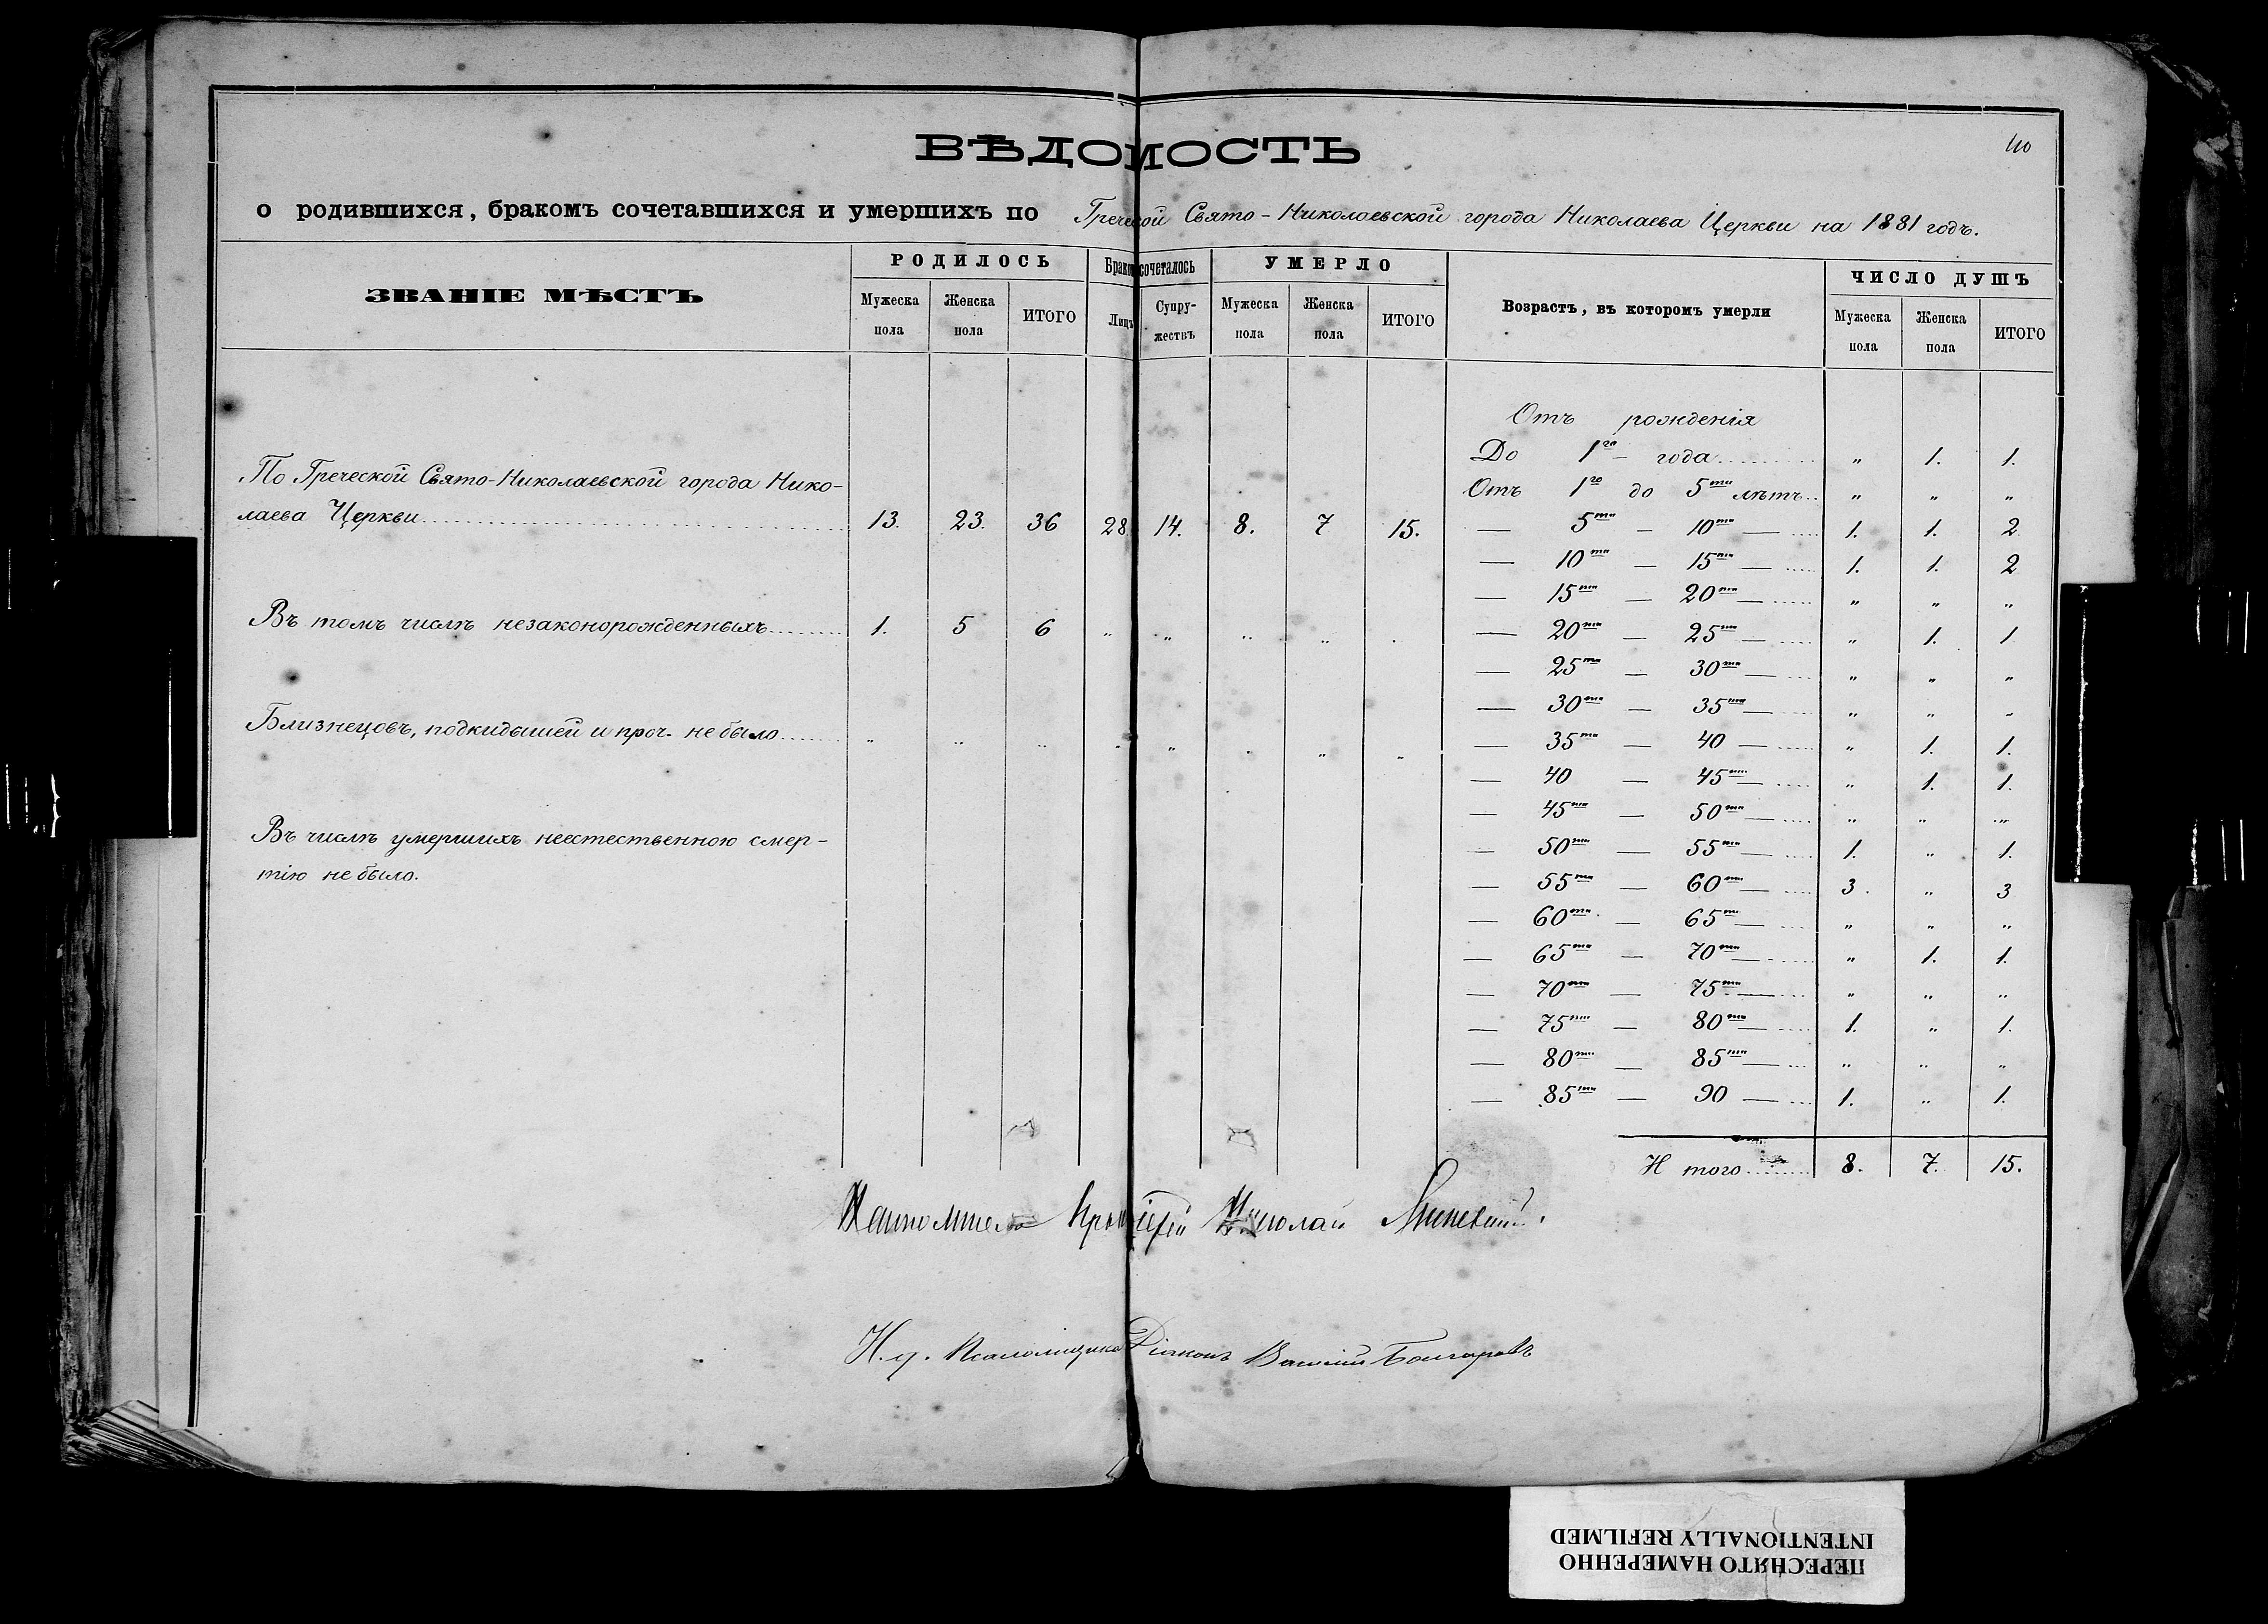 ВѢДОМОСТЬ
110
о родившихся, бракомъ сочетавшихся и умершихъ по Греческой Свято-Николаевской города Николаева Церкви на 1881 годъ.
ЗВАНІЕ МѢСТЪ
РОДИЛОСЬ
Бракомъ сочеталось
УМЕРЛО
Возрастъ, въ которомъ умерли
ЧИСЛО ДУШЪ
Мужеска пола
Женска пола
ИТОГО
Лицъ
Супружествъ
Мужеска пола
Женска пола
ИТОГО
Мужеска пола
Женска пола
ИТОГО
По Греческой Свято-Николаевской города Нико-
лаева Церкви 13. 23. 36 28 14. 8. 7 15.
Въ томъ числѣ незаконорожденныхъ 1. 5 6 „ „ „ „ „
Близнецовъ, подкидышей и проч. не было „ „ „ „ „ „ „ „
Въ числѣ умершихъ неестественною смер-
тію не было.
Отъ рожденія
До 1го года „ 1. 1.
Отъ 1го до 5ти лѣтъ „ „ „
— 5ти — 10ти — 1. 1. 2
— 10ти — 15ти — 1. 1. 2
— 15ти — 20ти — „ „ „
— 20ти — 25ти — „ 1. 1
— 25ти — 30ти — „ „ „
— 30ти — 35ти — „ „ „
— 35ти — 40 — „ 1. 1.
— 40 — 45ти — „ 1. 1.
— 45ти — 50ти — „ „ „
— 50ти — 55ти — 1. „ 1.
— 55ти — 60ти — 3. „ 3
— 60ти — 65ти — „ „ „
— 65ти — 70ти — „ 1. 1.
— 70ти — 75ти — „ „ „
— 75ти — 80ти — 1. „ 1.
— 80ти — 85ти — „ „ „
— 85ти — 90 — 1. „ 1.
Итого 8. 7. 15.
Настоятель Протоіерей Николай
И.д. Псаломщика Діаконъ Василій Болгаровъ
ПЕРЕСНЯТО НАМЕРЕННО
INTENTIONALLY REFILMED